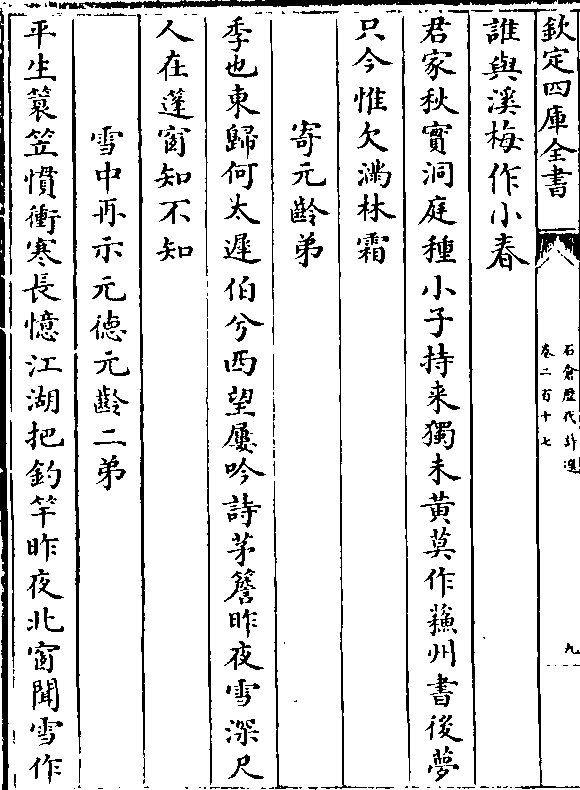 欽定四庫全書
石倉歷代詩選
卷二百十七
九
誰與溪梅作小春
君家秋實洞庭種小子持来獨未黄莫作蘓州書後夢
只今惟欠滿林霜
寄元齡弟
季也東歸何太遲伯兮西望屢吟詩茅簷昨夜雪深尺
人在蓬窗知不知
雪中再示元德元齡二弟
平生蓑笠慣衝寒長憶江湖把釣竿昨夜北窗聞雪作